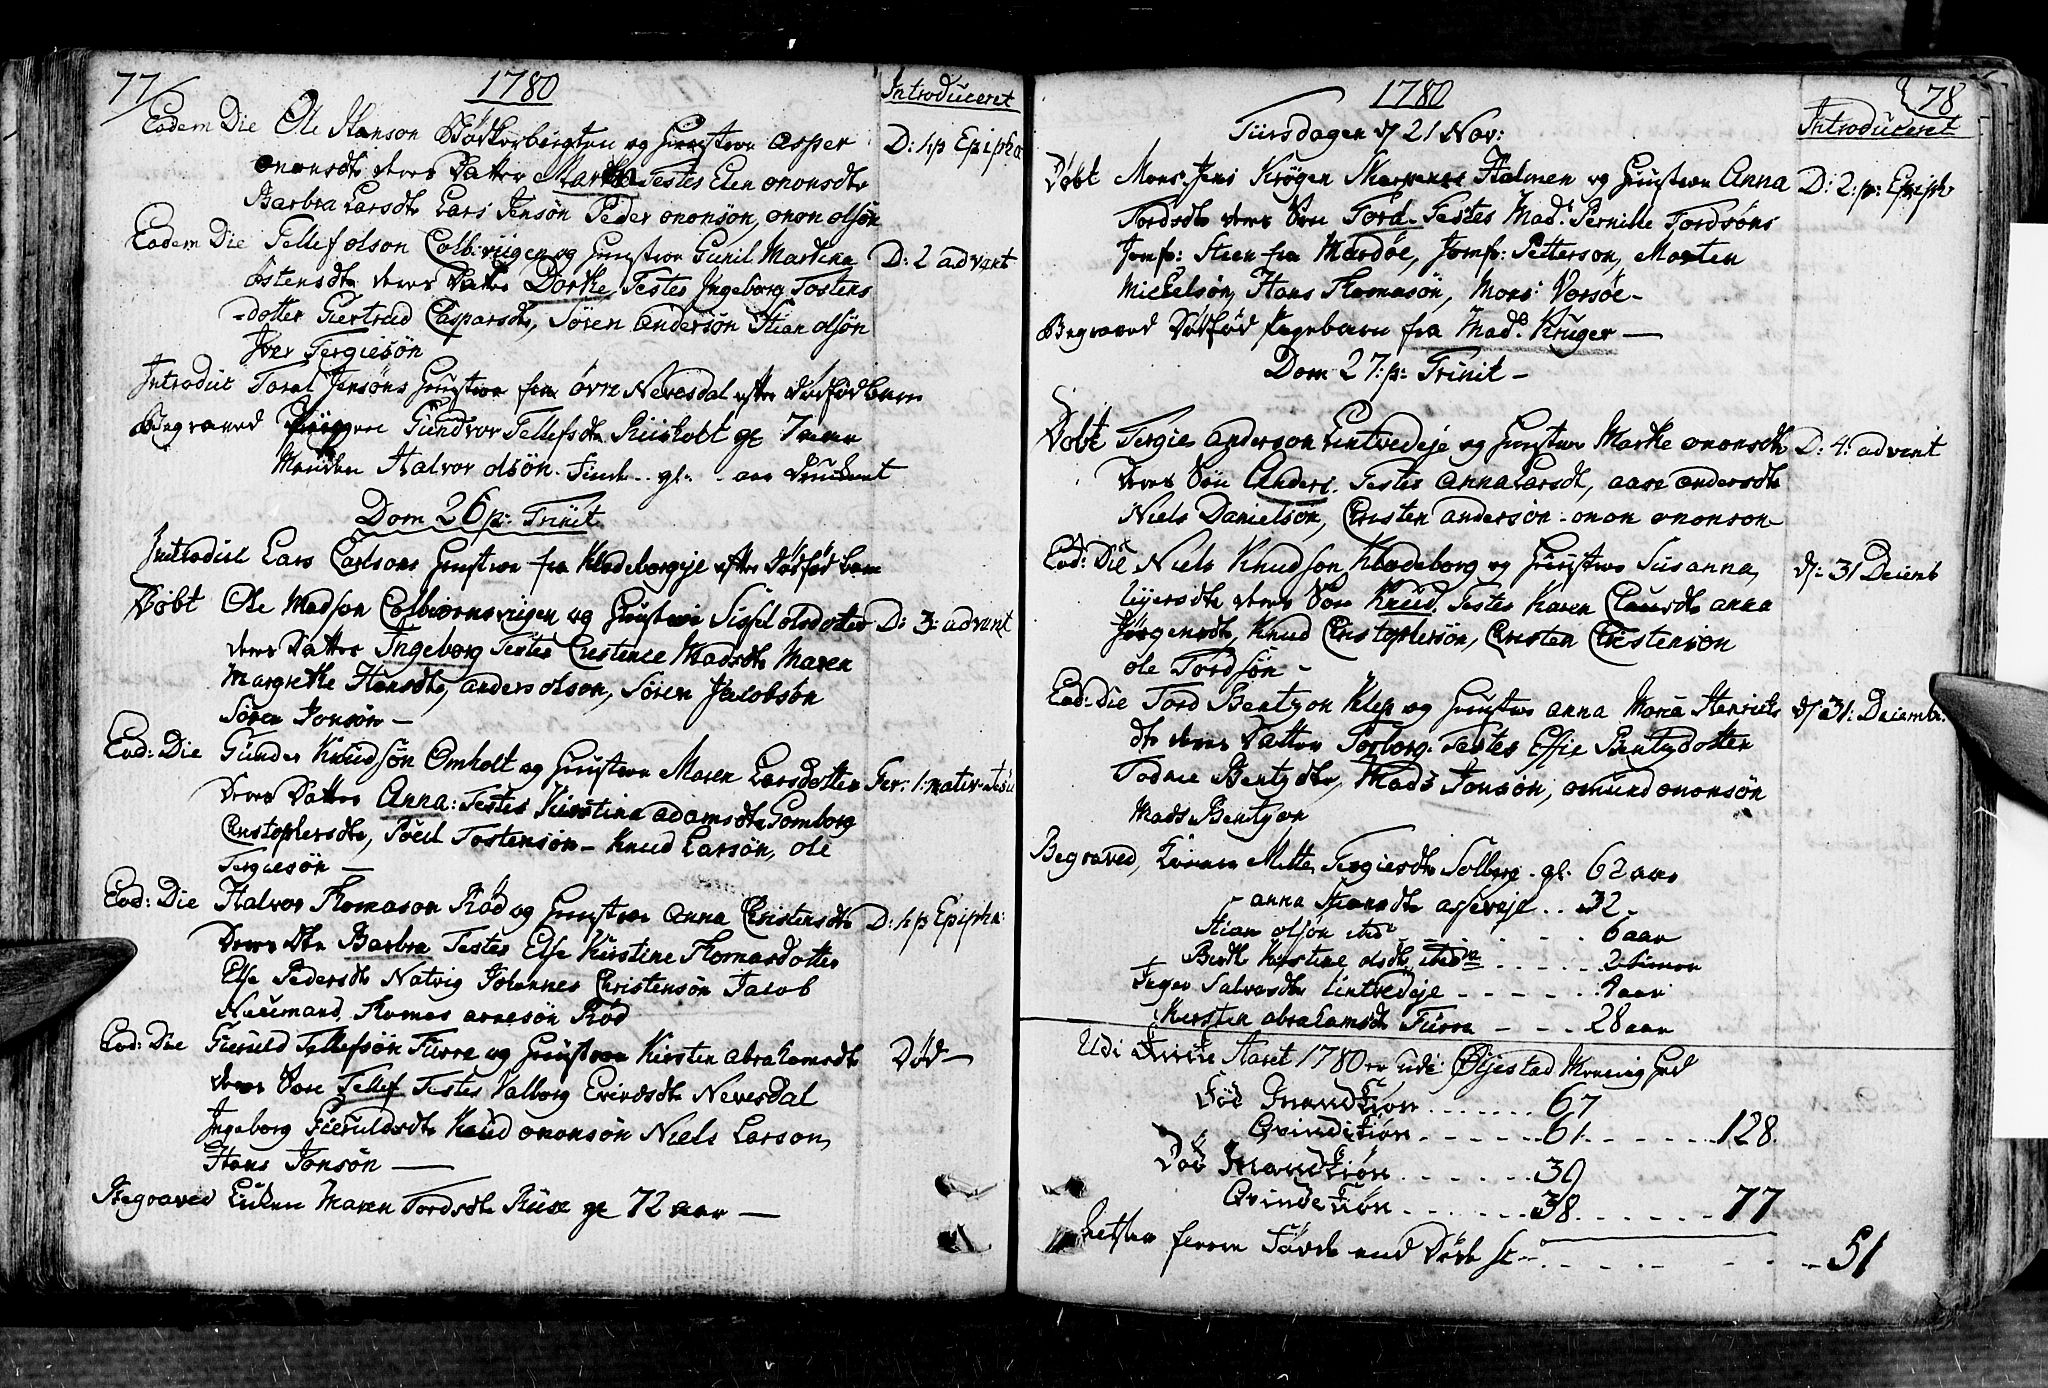 77/
1780
Introduceret
Eodem Die Ole Hanson og Hustroe Asper
Ononsdtr deres Datter Marthe Testes Elen Ononsdtr
Barbra Larsdtr Lars Jensøn Peder Ononsøn, Onon Olsøn
D: 1 p Epipha
Eodem Die Tellef Olson Colb.viigen og Hustroe Gunil Martina
Ostensdtr deres Datter Dorthe Testes Ingeborg Tostens
=dotter Giertrud Caspersdtr, Søren Andersøn Stian Olsøn
Iver Tergiesøn
D: 2 advent
Introduct Taral Jensøns Hustroe fra øvre Nevesdal efter dødfød barn
Begraved Gundvor Tellefsdtr gl 7 aar
Halvor Olsøn.
Dom 26 p: Trinit
Introduct Lars Carlsons Hustroe fra Kladeborgeje efter Dødfød barn
Døbt Ole Madson Colbiørnsviigen og Hustroe Sissel Olsdotter
deres Datter Ingeborg Testes Chrstence Madsdtr Maren
Margrethe Hansdtr, Anders Olson, Søren Jacobsøn
Søren Jonsøn –
D: 3: advent
Eod: Die Gunder Knudsøn Omholt og Hustroe Maren Larsdotter
Deres Datter Anna: Testes Kirstina Adamsdtr Gomborg
Christophersdtr, Poell Tostensøn – Knud Larsøn, Ole
Tergiesøn —
Fer: 1: nativ: Jesu
Eod: Die Halvor Thomason Rød og Hustroe Anna Christensdtr
Deres dtr Barbra Testes Else Kirstine Thomasdotter
Else Pedersdtr Natvig Johannes Christensøn Jacob
Neumand, Thomas Arnesøn Rød
D: 1 p Epipha:
Eod: Die Gieruld Tellefsøn Furre og Hustroe Kirsten Abrahamsdtr
deres Søn Tellef Testes Valborg Evindsdtr Nevesdal
Ingeborg Gieruldsdtr Knud Ononsøn Niels Larson,
Hans Jonsøn —
Død —
Begraved Enken Maren Tordsdtr gl 72 aar —
1780
78
Introduceret
Tiirsdagen d/ 21 Nov:
Døbt Mons: Jens Krøger Holmen og Hustroe Anna
Tordsdtr deres Søn Tord. Testes Mad: Pernille Tordsøns
Jomf: Steen fra Mardøe, Jomf: Petterson, Morten
Mickelsøn, Hans Thomasøn, Mons: Vorsøe –
D: 2: p: Epiph
Begraved Dødfød Pigebarn fra Mad: Kruger —
Dom 27: p: Trinit –
Døbt Tergie Anderson Lintvedeje og Hustroe Marthe Ononsdtr
deres Søn Anders. Testes Anna Larsdtr, Aase Andersdtr
Niels Danielsøn, Christen Andersøn – Onon Ononson –
D: 4: advent
Eod: Die Niels Knudson Kladeborg og Hustroe Susanna,
deres Søn Knud. Testes Karen Clausdtr Anna
Jørgensdtr, Knud Christophersøn, Christen Christensøn
Ole Tordsøn –
d/: 31 Decemb
Eod: Die Tord Bentson Klep og Hustroe Anna Maria Henrichs
dtr deres Datter Torborg. Testes Efie Bentsdotter
Todne Bentsdtr, Mads Jonsøn, Omund Ononsøn
Mads Bentson
d/ 31: Decembr:
Begraved, Mette Tergiesdtr Solberg . gl: 62 aar
Anna asseveje . . 32 –
Stian Olsøn . . . . 6 aar
Kirstine Olsdtr . . . . .
Inger Salvesdtr Lintvedeje – – – – . . aar
Kirsten Abrahamsdtr Furre – – – 28 aar
Udi Aaret 1780 er udi Øijestad Menighed
Fød Mandkiøn . . . . . . 67
Qvindekiøn . . . . . . 61. . . . . . . 128.
Død Mandkiøn . . . . . . 39
Qvindekiøn . . . . . . 38. . . . . . . 77
fleere Fødde end Døde . . . . . . . . 51